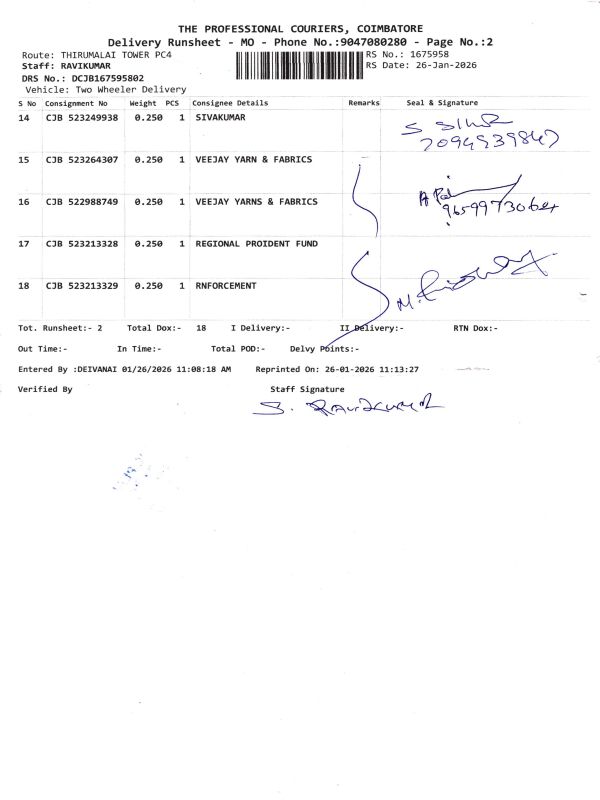 THE PROFESSIONAL COURIERS, COIMBATORE
Delivery Runsheet - MO - Phone No.:9047080280 - Page No.:2
Route: THIRUMALAI TOWER PC4 RS No.: 1675958
Staff: RAVIKUMAR RS Date: 26-Jan-2026
DRS No.: DCJB167595802
Vehicle: Two Wheeler Delivery
S No Consignment No Weight PCS Consignee Details Remarks Seal & Signature
14 CJB 523249938 0.250 1 SIVAKUMAR
15 CJB 523264307 0.250 1 VEEJAY YARN & FABRICS
16 CJB 522988749 0.250 1 VEEJAY YARNS & FABRICS
17 CJB 523213328 0.250 1 REGIONAL PROIDENT FUND
18 CJB 523213329 0.250 1 RNFORCEMENT
Tot. Runsheet:- 2 Total Dox:- 18 I Delivery:- II Delivery:- RTN Dox:-
Out Time:- In Time:- Total POD:- Delvy Points:-
Entered By :DEIVANAI 01/26/2026 11:08:18 AM Reprinted On: 26-01-2026 11:13:27
Verified By Staff Signature
S. RAVIKUMAR